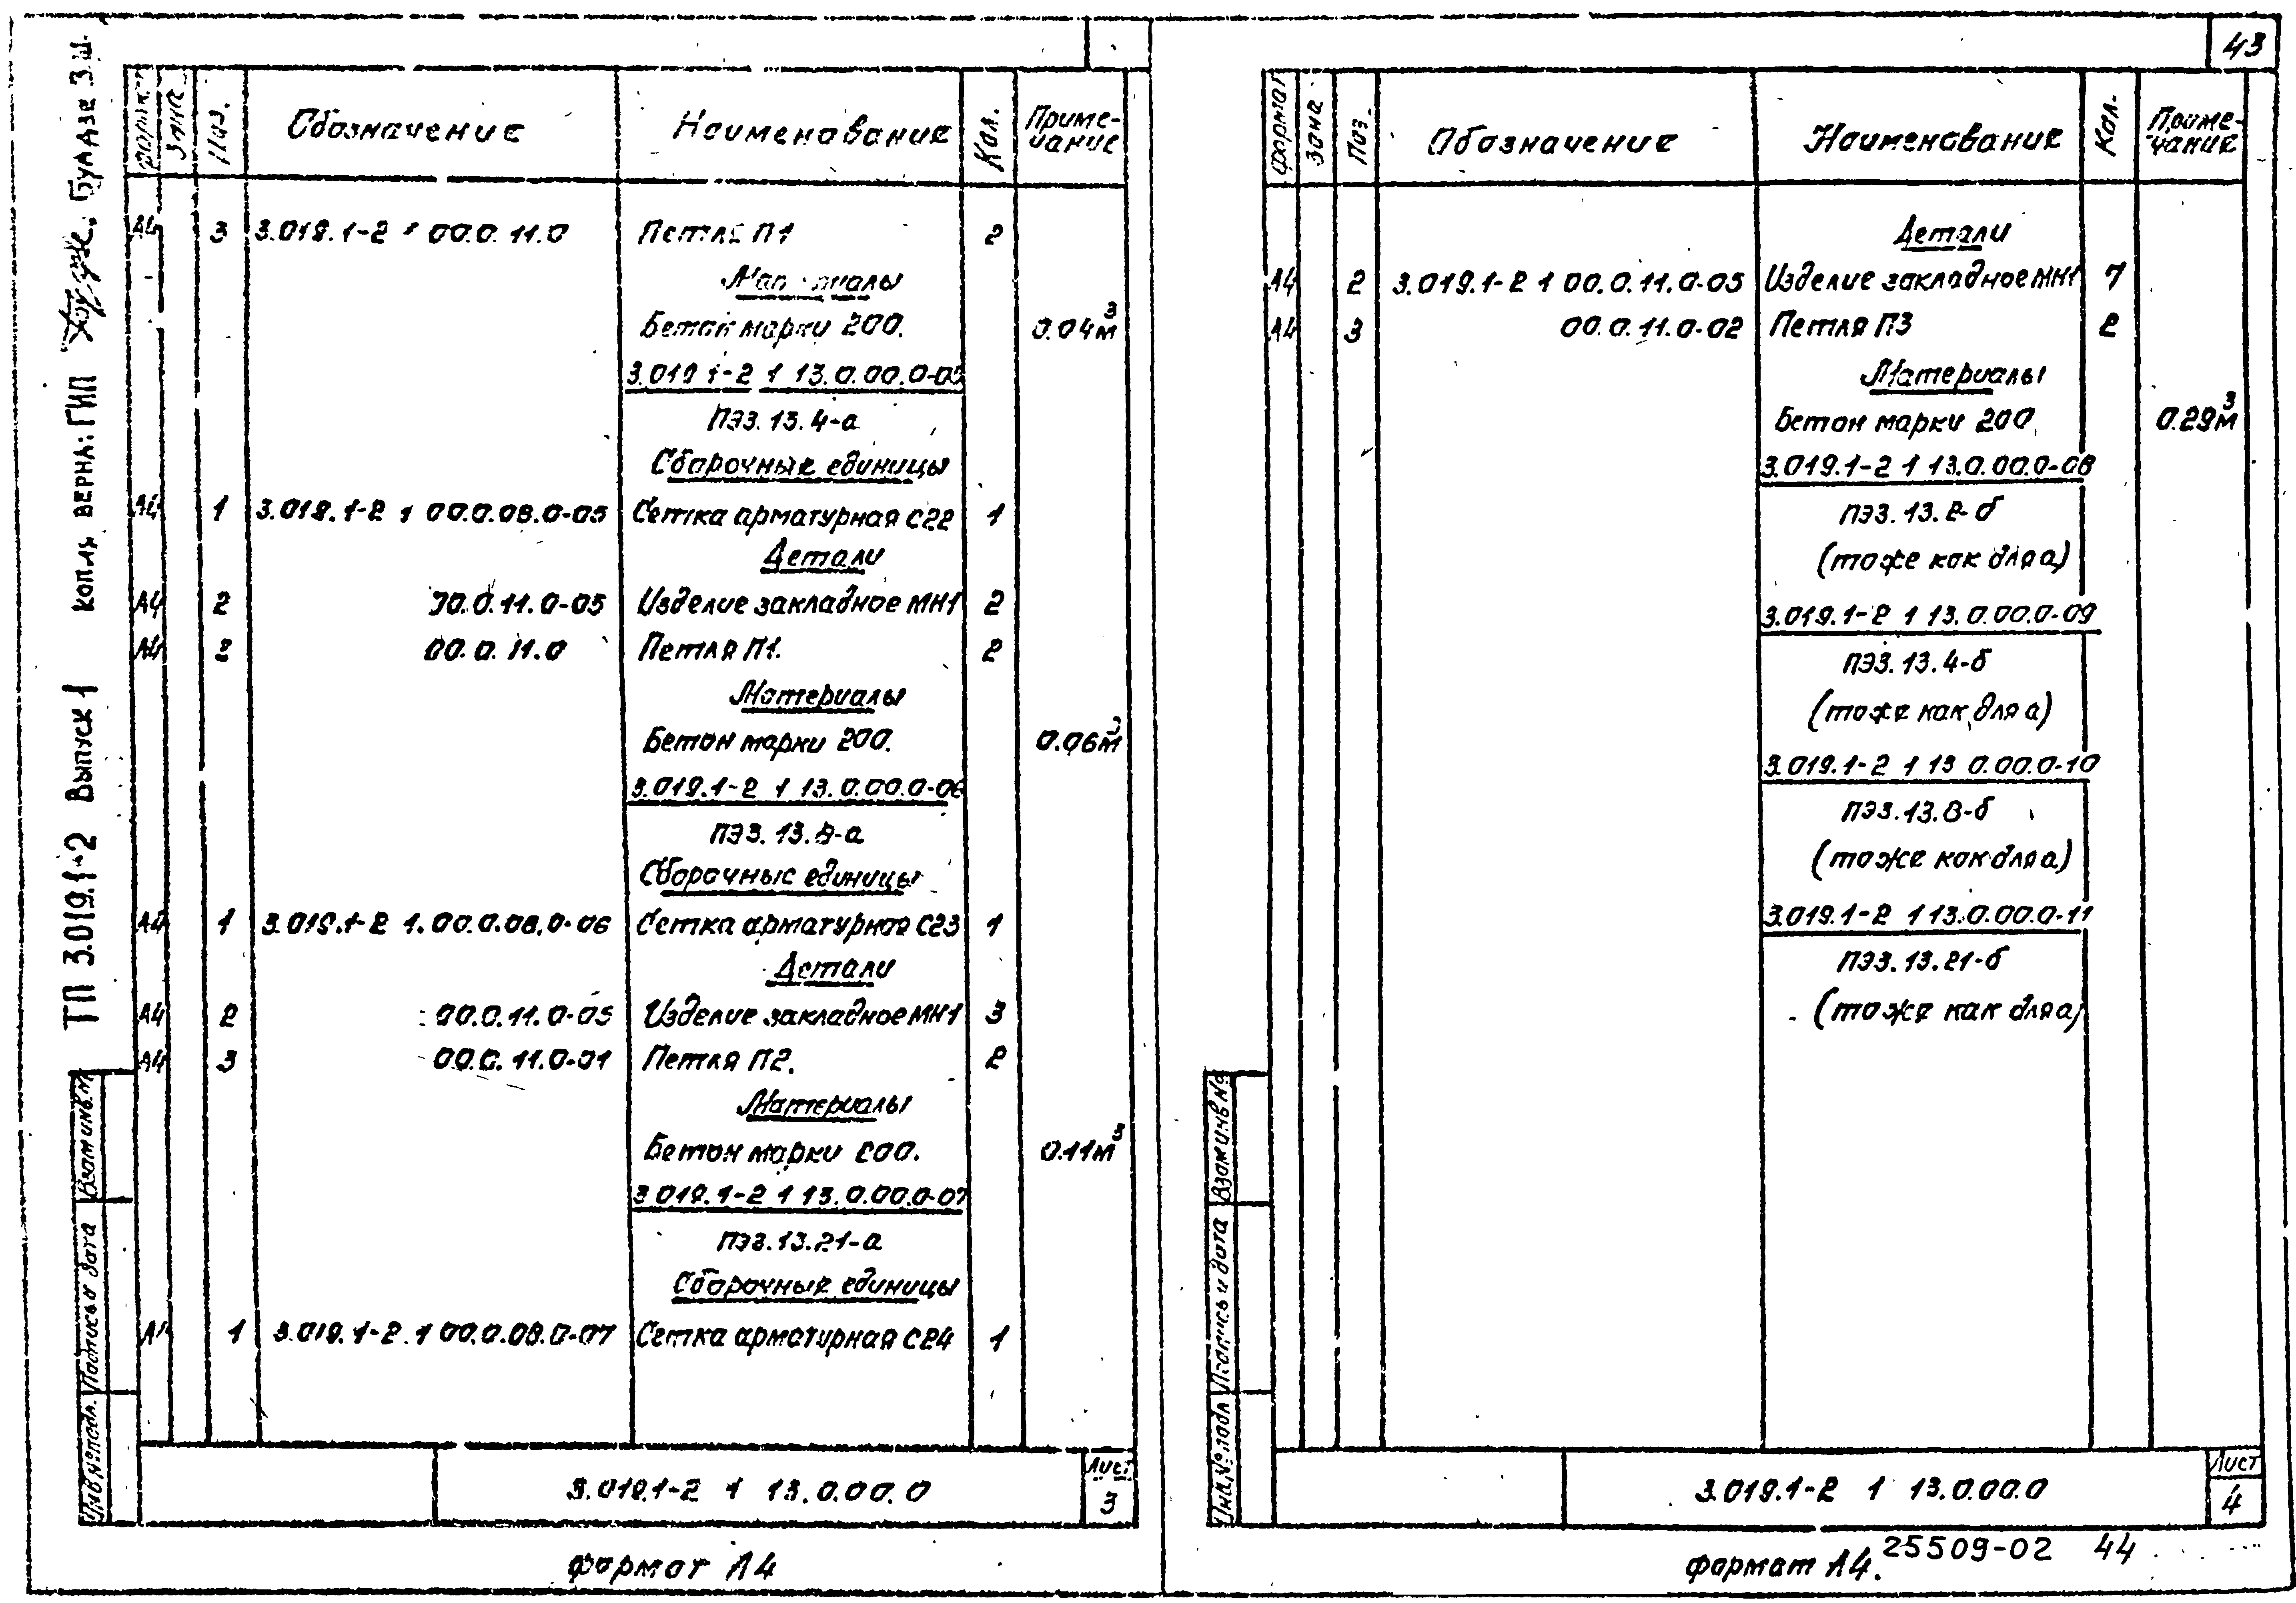 43
ТП 3.019.1-2 Выпуск 1 копия верна: ГИП
Формат Зона Поз. Обозначение Наименование Кол. Приме-чание
А4 3 3.019.1-2 1 00.0.11.0 Петля П1 2
Материалы
Бетон марки 200. 0.04м³
3.019.1-2 1 13.0.00.0-05
ПЭЗ.13.4-а
Сборочные единицы
А4 1 3.019.1-2 1 00.0.08.0-05 Сетка арматурная С22 1
Детали
А4 2 00.0.11.0-05 Изделие закладное МН1 2
А4 2 00.0.11.0 Петля П1. 2
Материалы
Бетон марки 200. 0.06м³
3.019.1-2 1 13.0.00.0-06
ПЭЗ.13.8-а
Сборочные единицы
А4 1 3.019.1-2 1.00.0.08.0-06 Сетка арматурная С23 1
Детали
А4 2 00.0.11.0-05 Изделие закладное МН1 3
А4 3 00.0.11.0-01 Петля П2. 2
Материалы
Бетон марки 200. 0.11м³
3.019.1-2 1 13.0.00.0-07
ПЭЗ.13.21-а
Сборочные единицы
А4 1 3.019.1-2.1 00.0.08.0-07 Сетка арматурная С24 1
Инв.№подл. Подпись и дата Взам инв.№
3.019.1-2 1 13.0.00.0
Лист
3
Формат А4
Формат Зона Поз. Обозначение Наименование Кол. Приме-чание
Детали
А4 2 3.019.1-2 1 00.0.11.0-05 Изделие закладное МН1 7
А4 3 00.0.11.0-02 Петля П3 2
Материалы
Бетон марки 200 0.29м³
3.019.1-2 1 13.0.00.0-08
ПЭЗ.13.2-б
(тоже как для а)
3.019.1-2 1 13.0.00.0-09
ПЭЗ.13.4-б
(тоже как для а)
3.019.1-2 1 13 0.00.0-10
ПЭЗ.13.8-б
(тоже как для а)
3.019.1-2 1 13.0.00.0-11
ПЭЗ.13.21-б
(тоже как для а)
Инв.№подл Подпись и дата Взам инв №
3.019.1-2 1 13.0.00.0
Лист
4
Формат А4.
25509-02 44